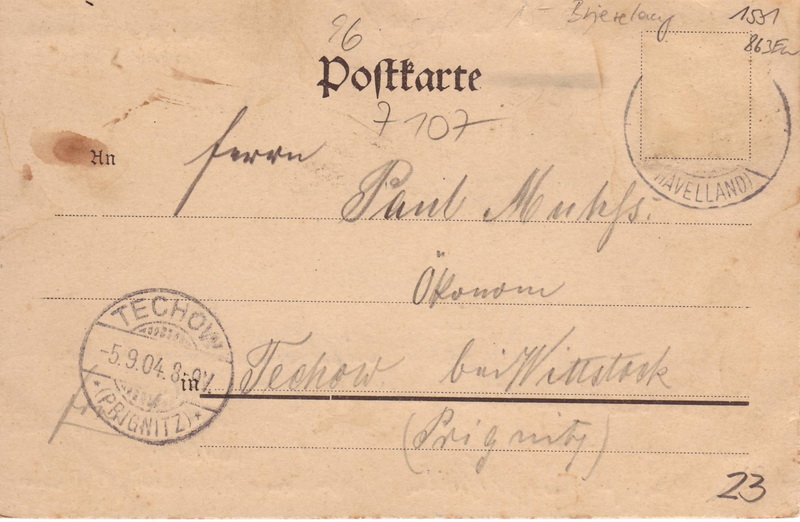 1551
863
96
Postkarte
7107
(HAVELLAND)
An Herrn
Paul
Ökonom
TECHOW
-5.9.04.8-9V.
*(PRIGNITZ)*
in Techow bei Wittstock
(Prignitz)
23